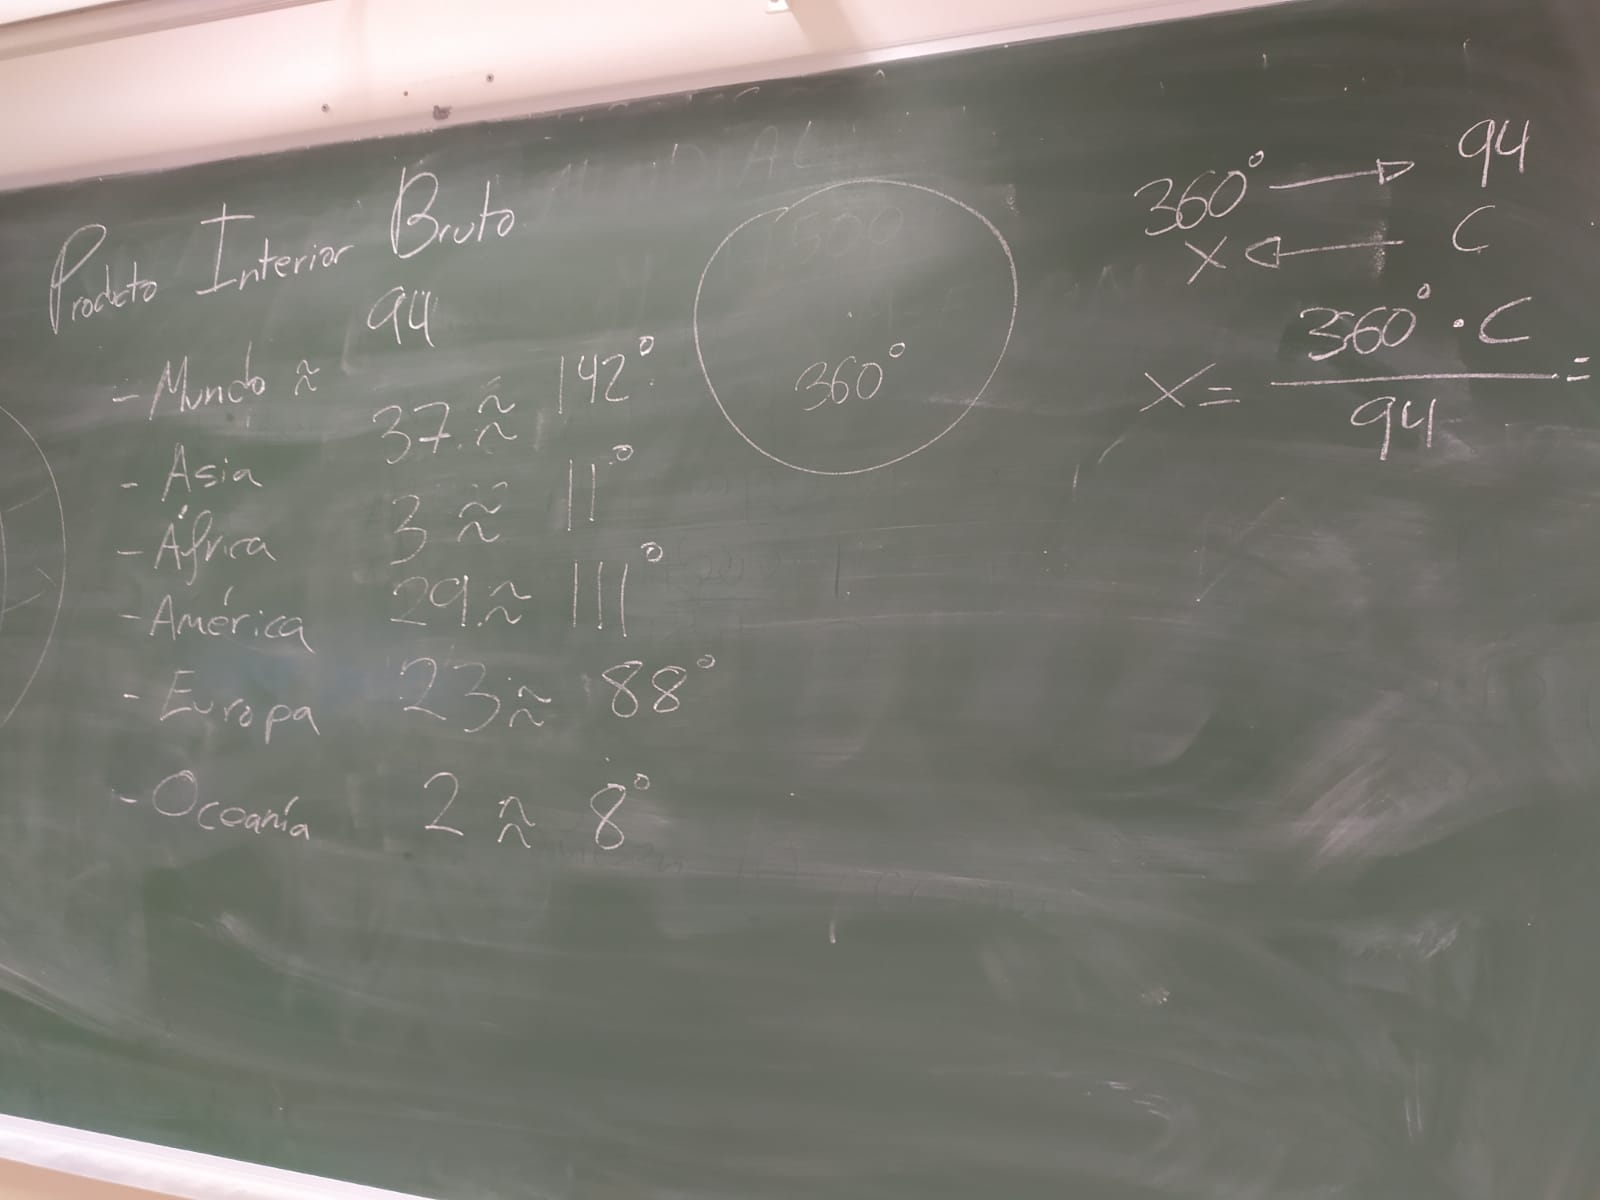 Producto Interior Bruto
- Mundo ≈ 94
- Asia 37 ≈ 142°
- África 3 ≈ 11°
- América 29 ≈ 111°
- Europa 23 ≈ 88°
- Oceanía 2 ≈ 8°
360°
360° → 94
X ← C
X = 360° · C / 94 =